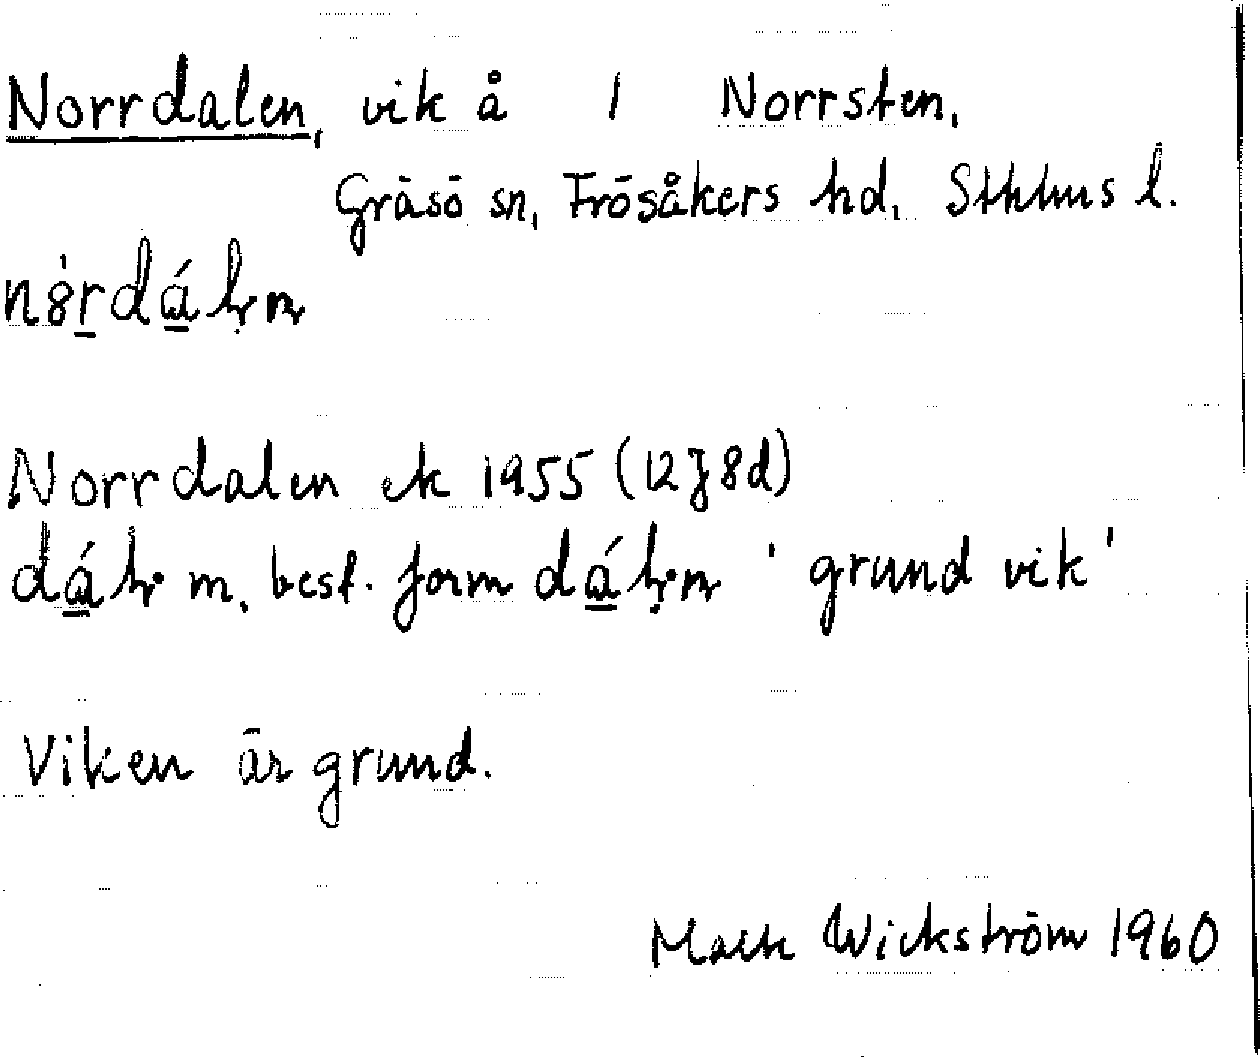 Norrdalen, vik å 1 Norrsten,
Gräsö sn, Frösåkers hd, Sthlms l.
Norrdalen ek 1955 (12J8d)
m. best. form 'grund vik'
Viken är grund.
Wickström 1960